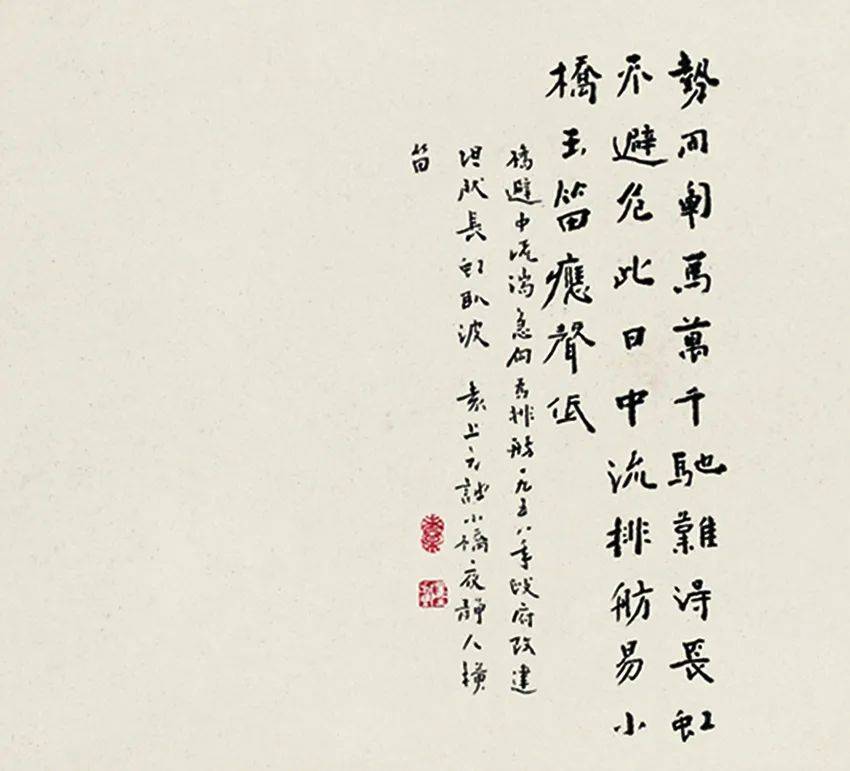 勢同閘馬萬千馳難得長虹
不避危此日中流排舫易小
橋玉笛應聲低
橋避中流湍急向為排舫一九五八年政府改建
長虹臥波 上小橋夜靜人橫
笛